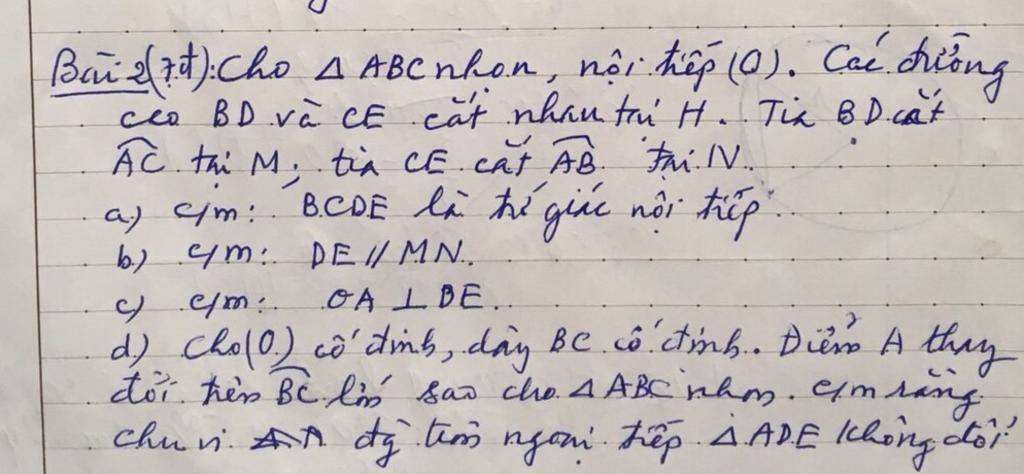 Bài 2(7đ): Cho △ ABC nhọn, nội tiếp (O). Các đường
cao BD và CE cắt nhau tại H. Tia BD cắt
AC tại M; tia CE cắt AB tại N.
a) c/m: BCDE là tứ giác nội tiếp.
b) c/m: DE // MN.
c) c/m: OA ⊥ DE.
d) Cho (O) cố định, dây BC cố định. Điểm A thay
đổi trên BC lớn sao cho △ ABC nhọn. c/m rằng
chu vi đg tròn ngoại tiếp △ ADE không đổi